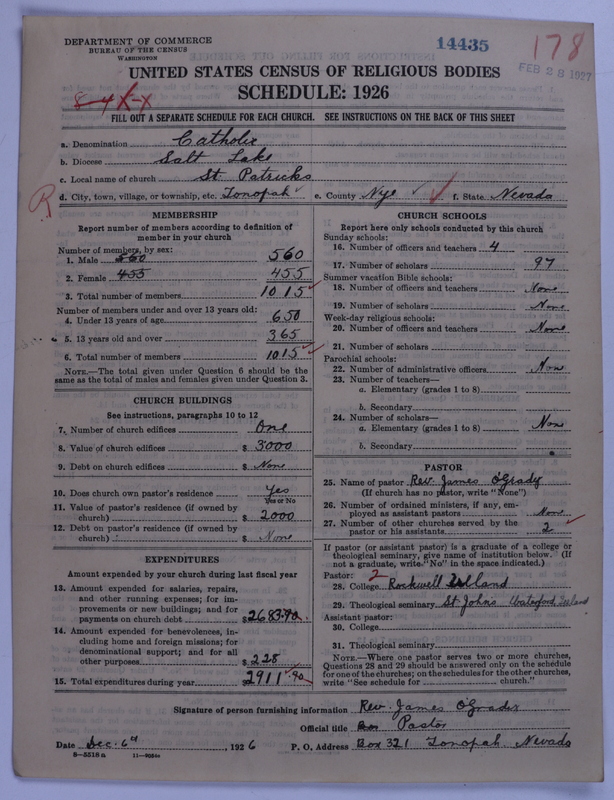 DEPARTMENT OF COMMERCE
BUREAU OF THE CENSUS
WASHINGTON
14435
178
FEB 28 1927
UNITED STATES CENSUS OF RELIGIOUS BODIES
SCHEDULE: 1926
8-4 X-X
FILL OUT A SEPARATE SCHEDULE FOR EACH CHURCH. SEE INSTRUCTIONS ON THE BACK OF THIS SHEET
a. Denomination Catholic
b. Diocese Salt Lake
c. Local name of church St. Patricks
R
d. City, town, village, or township, etc. Tonopah ✓ e. County Nye ✓ f. State Nevada
MEMBERSHIP
Report number of members according to definition of
member in your church
Number of members, by sex:
1. Male 560 560
2. Female 455 455
3. Total number of members 1015 ✓
Number of members under and over 13 years old:
4. Under 13 years of age 650
5. 13 years old and over 365
6. Total number of members 1015 ✓
NOTE.—The total given under Question 6 should be the
same as the total of males and females given under Question 3.
CHURCH BUILDINGS
See instructions, paragraphs 10 to 12
7. Number of church edifices One
8. Value of church edifices $ 3000
9. Debt on church edifices $ None
10. Does church own pastor's residence Yes
Yes or No
11. Value of pastor's residence (if owned by
church) $ 2000
12. Debt on pastor's residence (if owned by
church) $ None
EXPENDITURES
Amount expended by your church during last fiscal year
13. Amount expended for salaries, repairs,
and other running expenses; for im-
provements or new buildings; and for
payments on church debt $ 2683.90
14. Amount expended for benevolences, in-
cluding home and foreign missions; for
denominational support; and for all
other purposes $ 228
15. Total expenditures during year $ 2911.90
CHURCH SCHOOLS
Report here only schools conducted by this church
Sunday schools:
16. Number of officers and teachers 4
17. Number of scholars 97
Summer vacation Bible schools:
18. Number of officers and teachers None
19. Number of scholars None
Week-day religious schools:
20. Number of officers and teachers None
21. Number of scholars
Parochial schools:
22. Number of administrative officers Non
23. Number of teachers—
a. Elementary (grades 1 to 8)
b. Secondary
24. Number of scholars—
a. Elementary (grades 1 to 8) Non
b. Secondary
PASTOR
25. Name of pastor Rev. James O'Grady
(If church has no pastor, write "None")
26. Number of ordained ministers, if any, em-
ployed as assistant pastors None
27. Number of other churches served by the
pastor or his assistants 2 ✓
If pastor (or assistant pastor) is a graduate of a college or
theological seminary, give name of institution below. (If
not a graduate, write "No" in the space indicated.)
Pastor: 2
28. College Rockwell Ireland
29. Theological seminary St Johns Waterford, Ireland
Assistant pastor:
30. College
31. Theological seminary
NOTE.—Where one pastor serves two or more churches,
Questions 28 and 29 should be answered only on the schedule
for one of the churches; on the schedules for the other churches,
write "See schedule for church."
Signature of person furnishing information Rev. James O'Grady
Official title Pastor
Date Dec. 6th, 1926 P. O. Address Box 321 Tonopah Nevada
8—5518 n